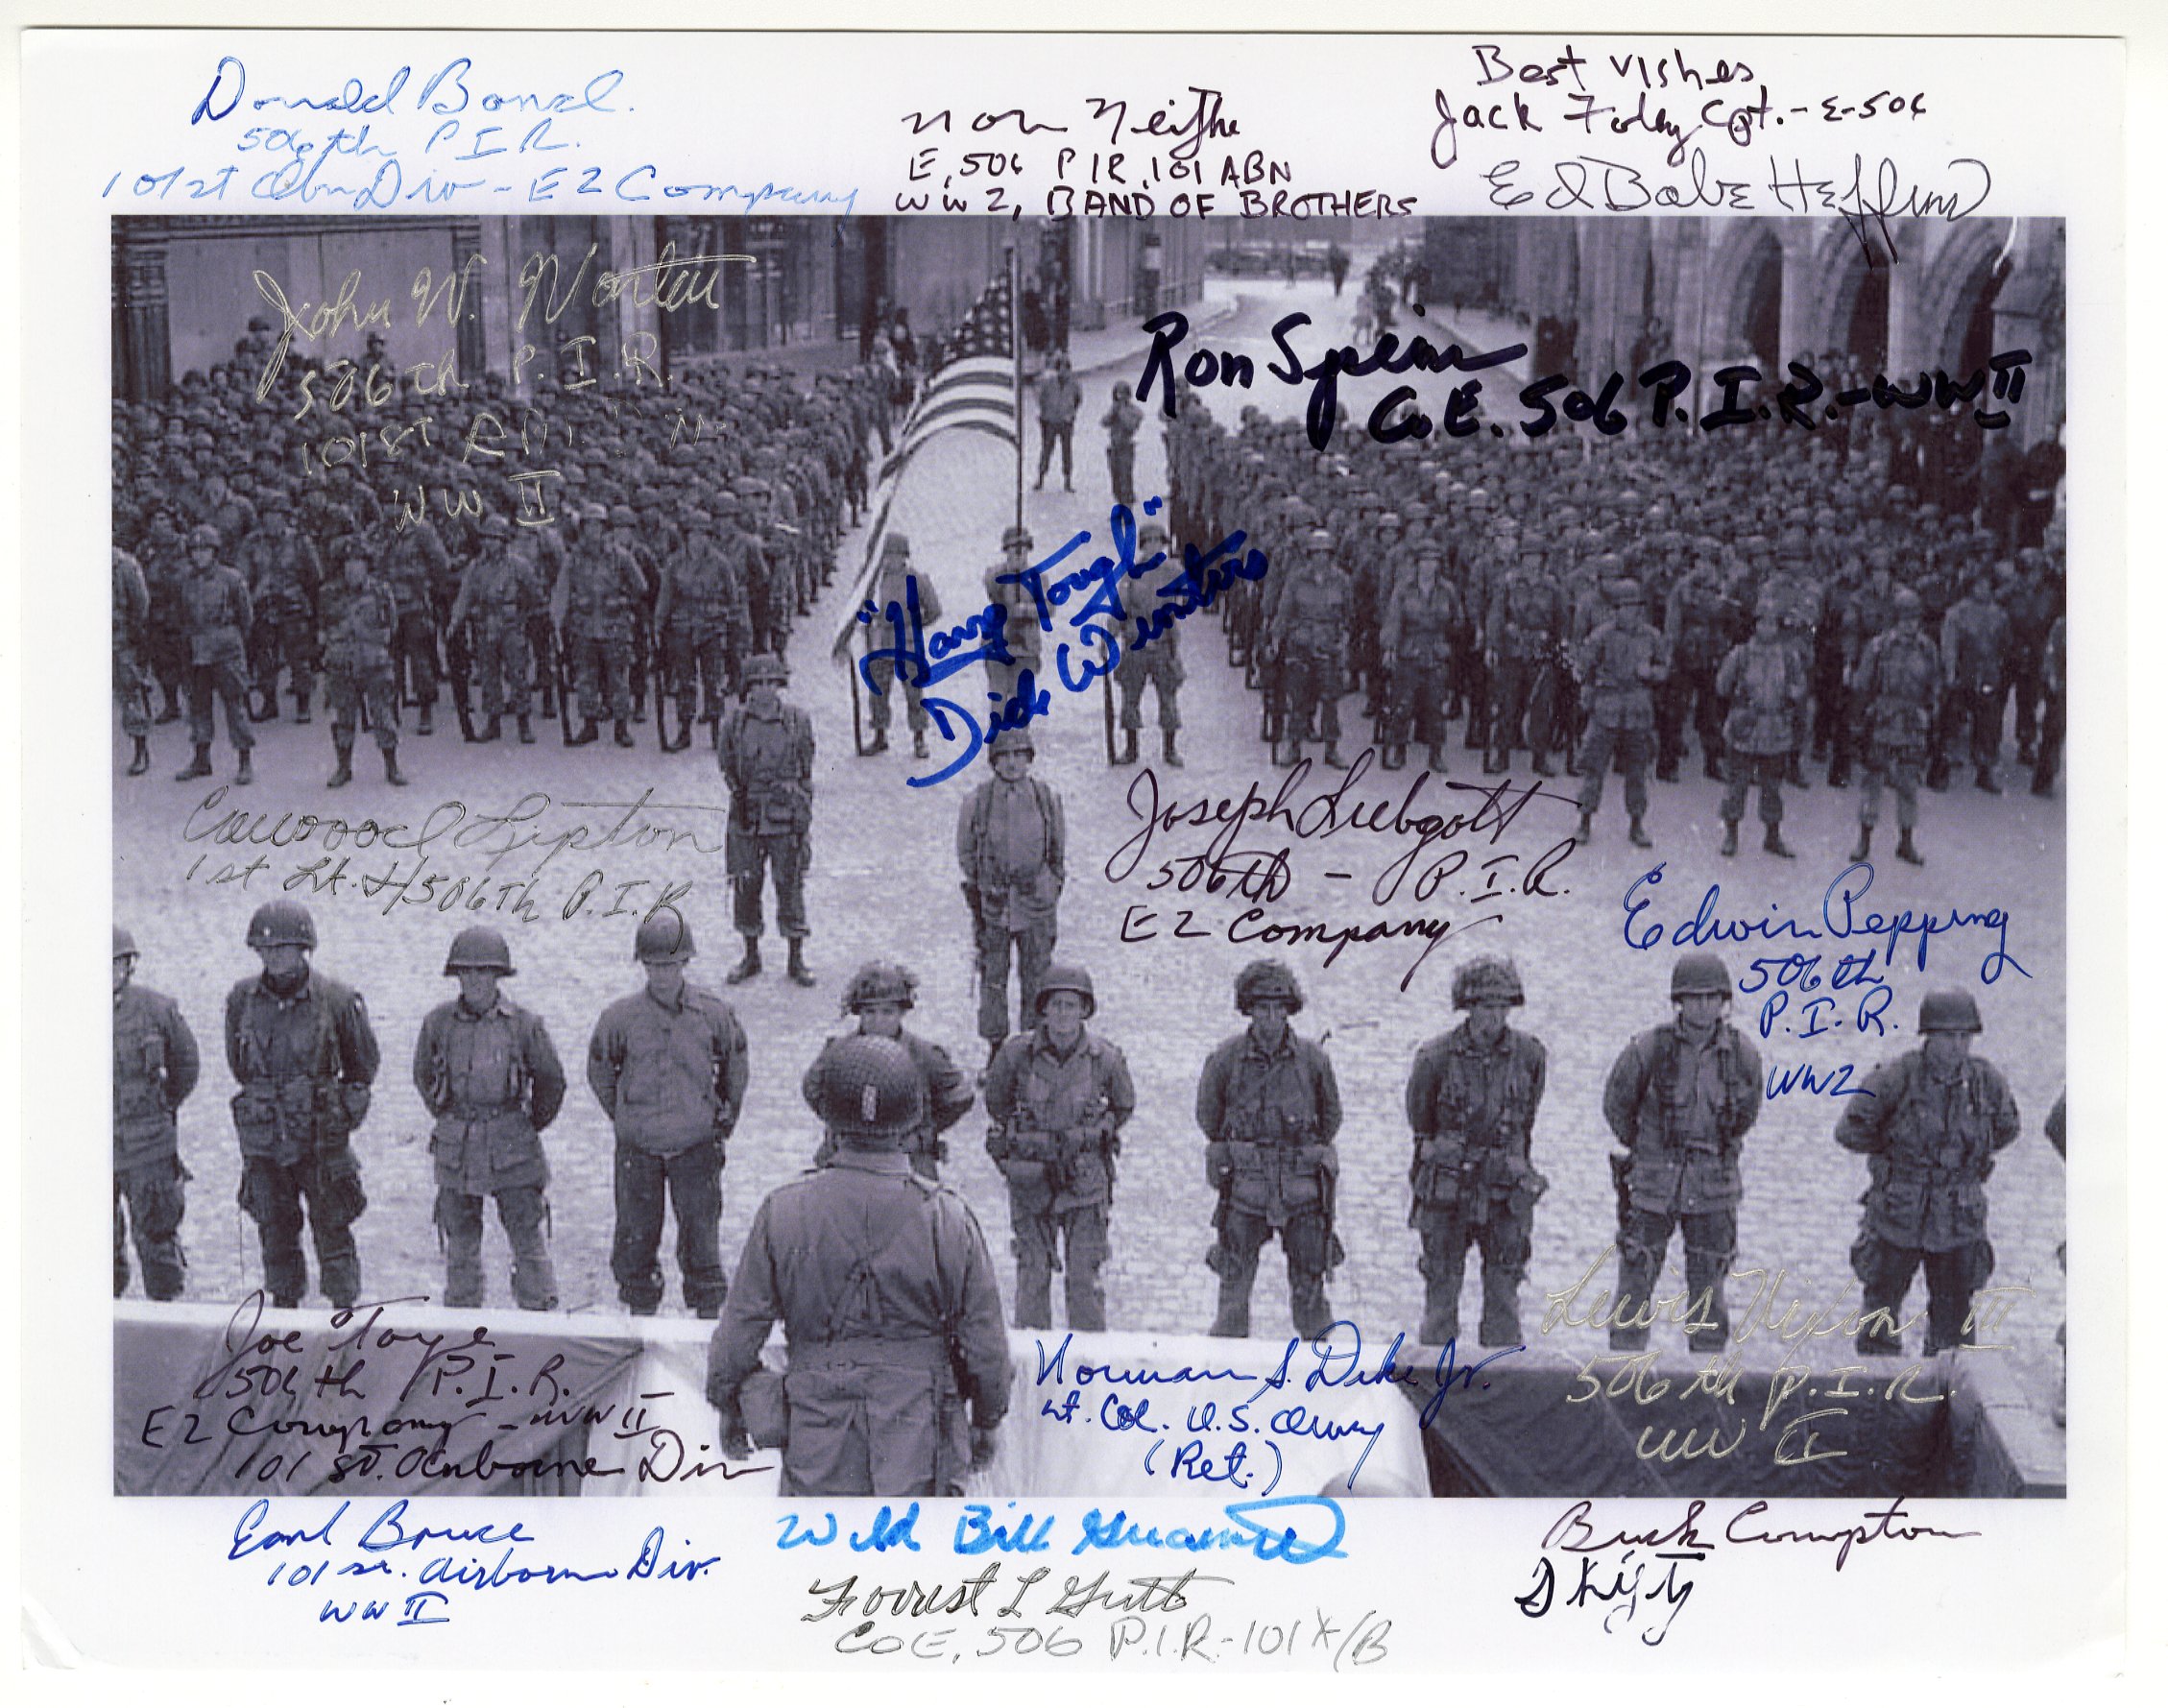 Donald Bond.
506th P.I.R.
101st Abn Div - E2 Company
E, 506 PIR, 101 ABN
WW2, BAND OF BROTHERS
Best Wishes
Jack Foley Cpt. - E-506
Ed Babe Heffron
John W. Martin
506th P.I.R.
101ST
WW II
Ron Speirs
Co E. 506 P.I.R. - WW II
"Hang Tough"
Dick Winters
Carwood Lipton
1st Lt. 506th P.I.R
Joseph Liebgott
506th - P.I.R.
E2 Company
Edwin Pepping
506th
P.I.R.
WW2
Joe Toye
506th P.I.R.
E2 Company - WW II
101 st. Airborne Div
Norman S. Dike Jr.
Lt. Col. U.S. Army
(Ret.)
Lewis Nixon III
506th P.I.R.
WW II
Earl Bruce
101 st. Airborne Div.
WW II
Wild Bill Guarnere
Forrest L Guth
Co E, 506 P.I.R. - 101 A/B
Buck Compton